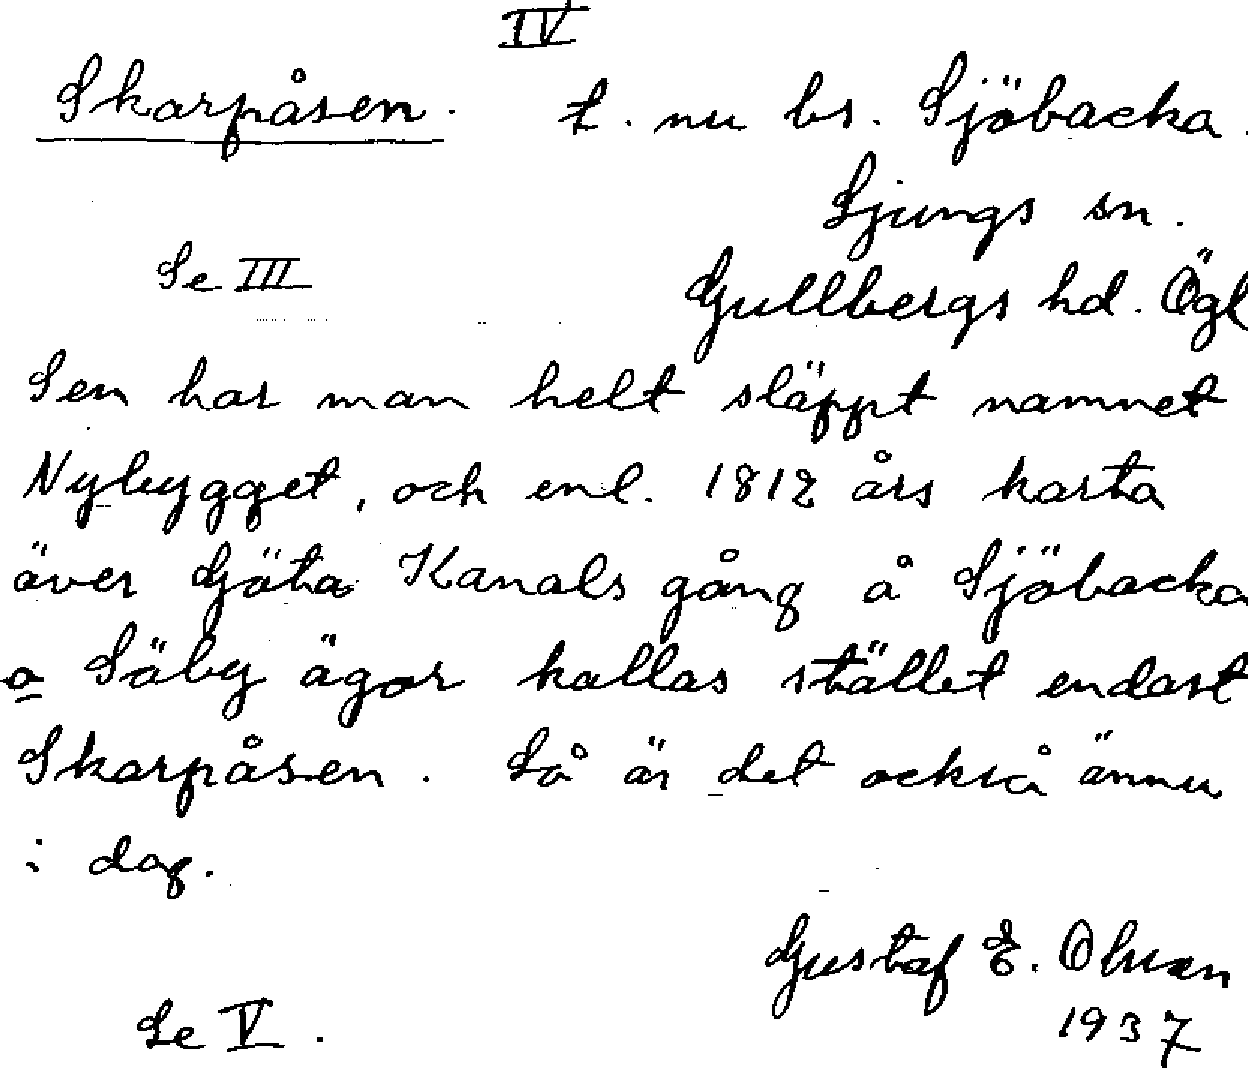 IV
Skarpåsen. t. nu bs. Sjöbacka.
Ljungs sn.
Se III
Gullbergs hd. Ögl
Sen har man helt släppt namnet
Nybygget, och enl. 1812 års karta
över Göta Kanals gång å Sjöbacka
o Säby ägor kallas stället endast
Skarpåsen. Så är det också ännu
i dag.
Gustaf E. Olsson
1937
Se V.